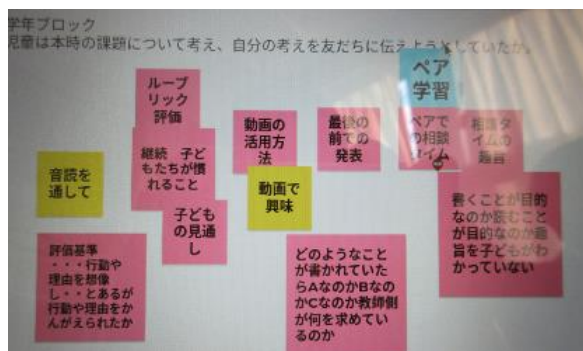 学年ブロック
児童は本時の課題について考え、自分の考えを友だちに伝えようとしていたか。
ルーブ
リック
評価
継続 子ど
もたちが慣
れること
子ども
の見通
し
音読を
通して
評価基準
・・・行動や
理由を想像
し・・とあるが
行動や理由をか
んがえられたか
動画の
活用方
法
動画で
興味
最後の
前での
発表
ペア
学習
ペアで
の相談
タイム
相談タ
イムの
趣旨
書くことが目的
なのか読むこと
が目的なのか趣
旨を子どもがわ
かっていない
どのようなこと
が書かれていた
らAなのかBなの
かCなのか教師側
が何を求めてい
るのか